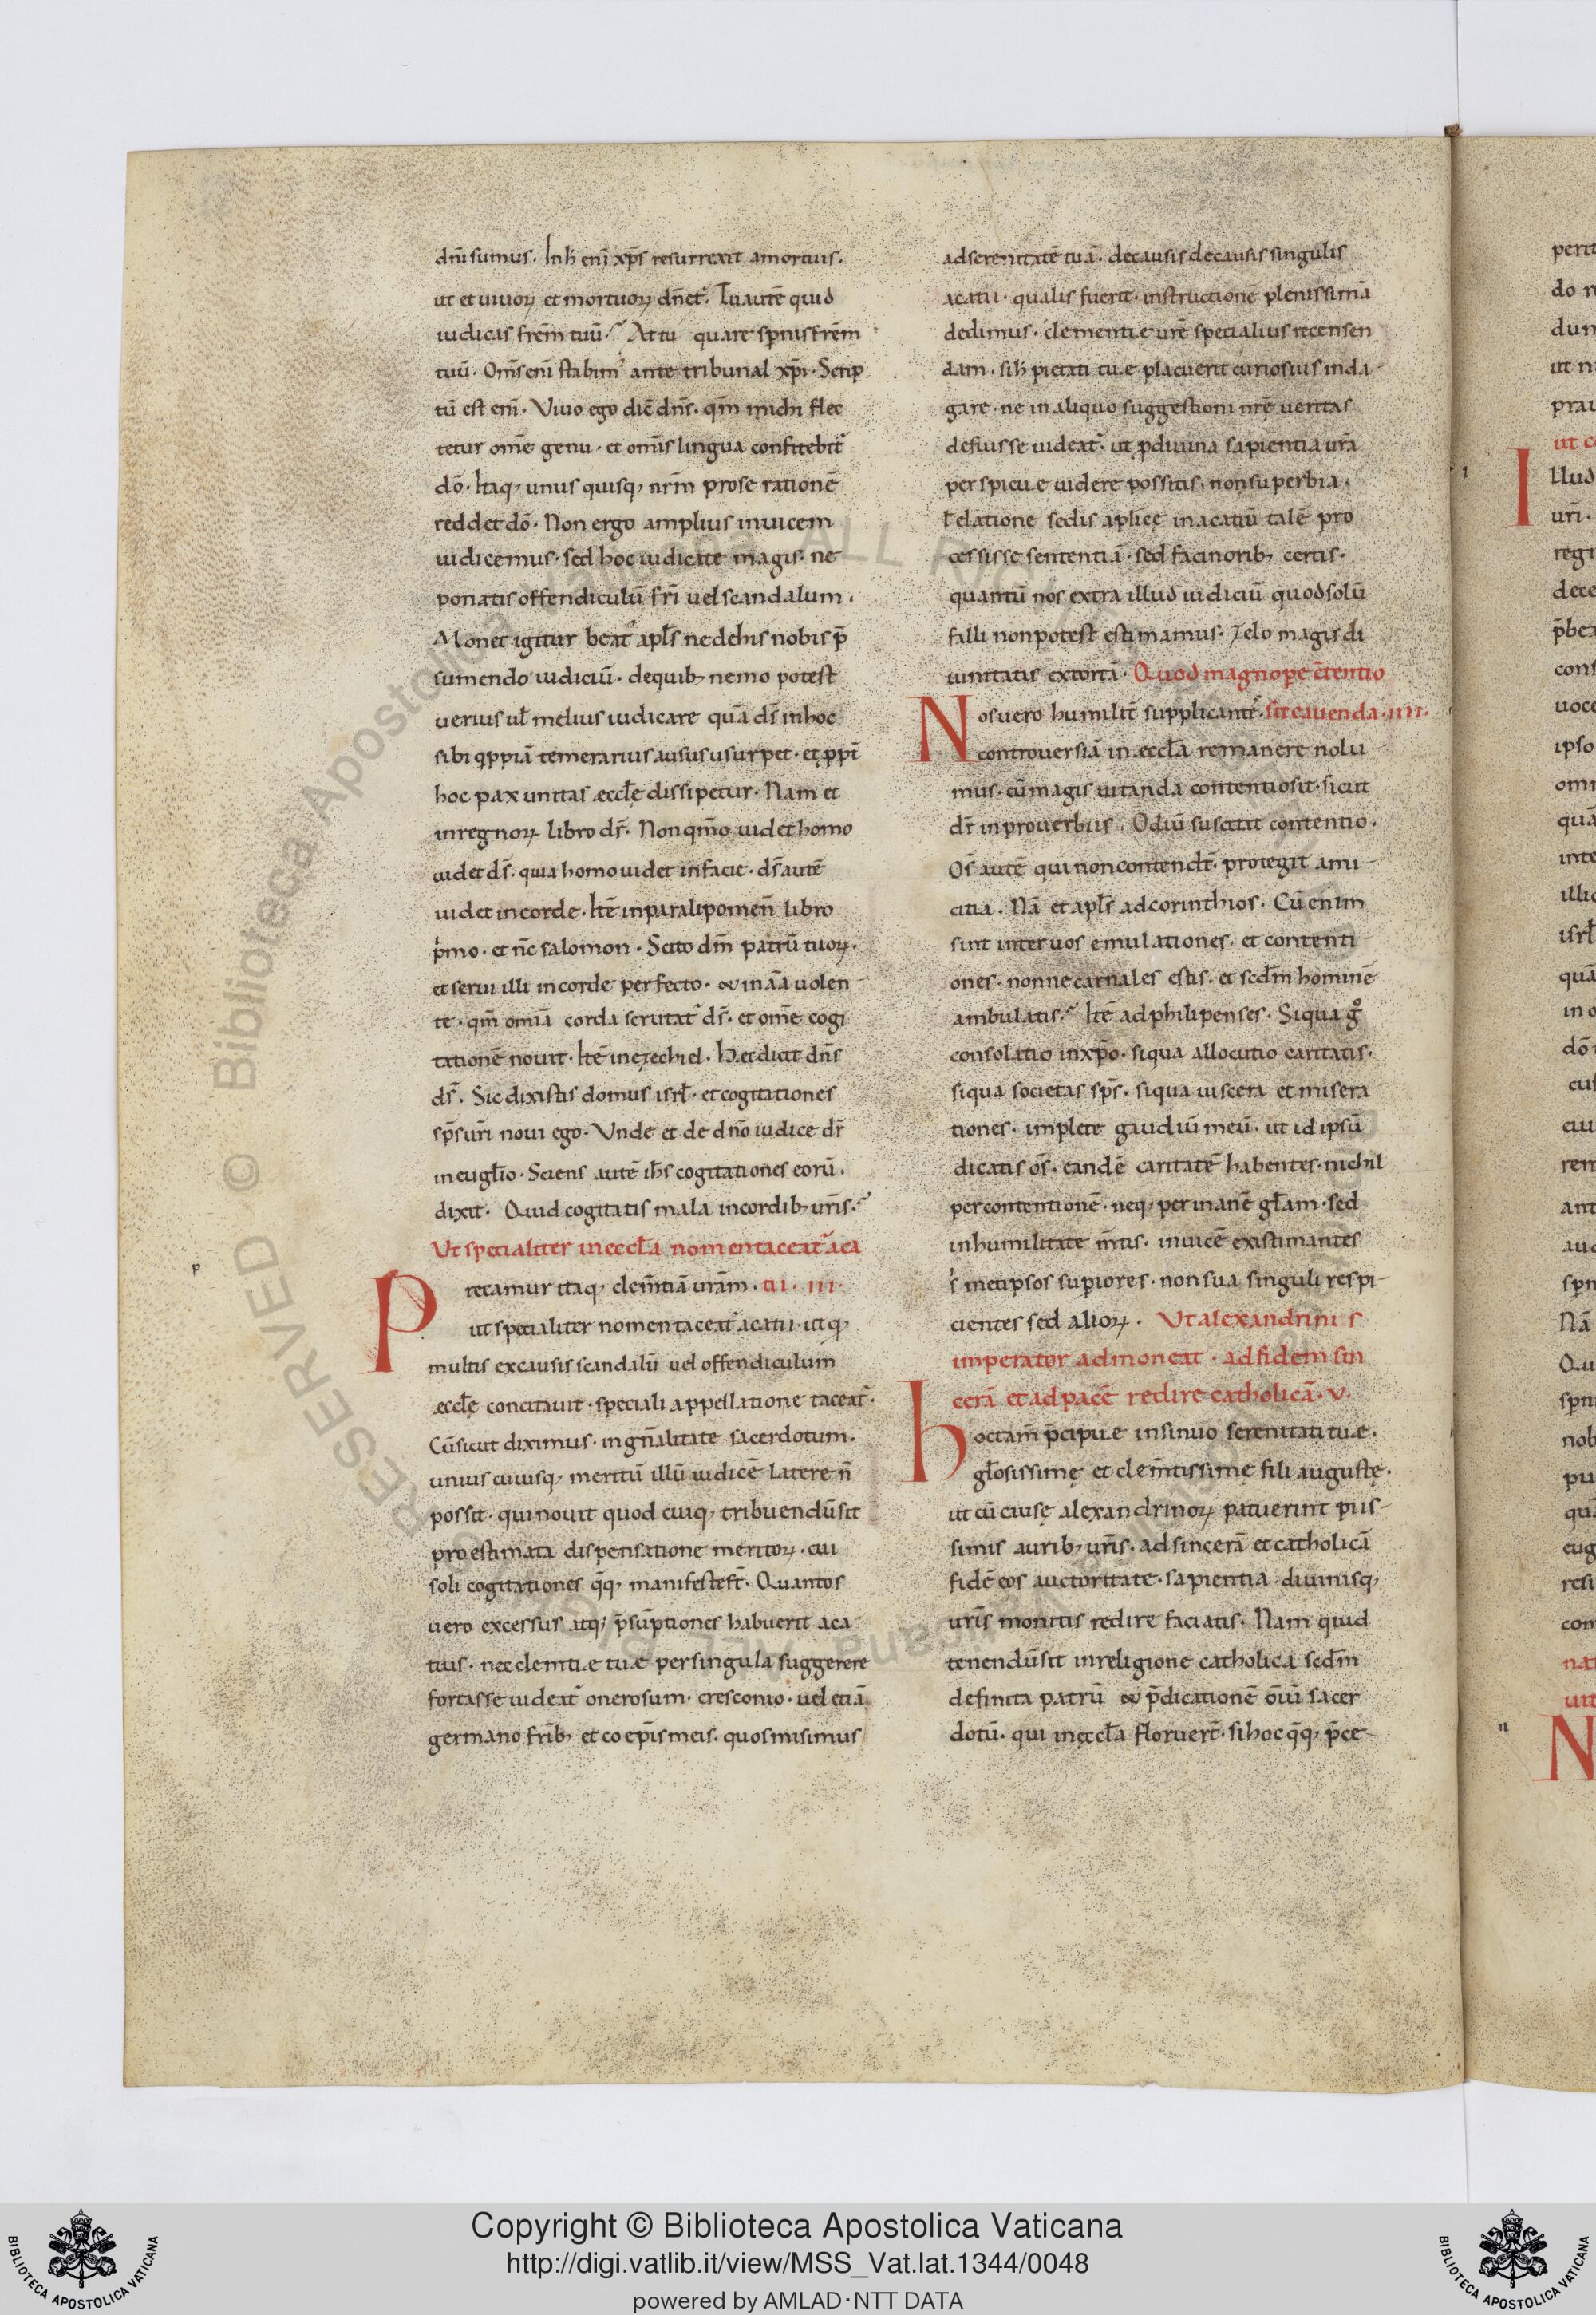 dñi sumus. In h̄ eni xp̄s resurrexit amortuis.
ut et uiuoꝝ et mortuoꝝ dñet᷑. Tu autē quid
iudicas frēm tuū? At tu quare sp̄nis frēm
tuū. Om̄s eni stabim᷒ ante tribunal xp̄i. Scrip
tū est eni. Viuo ego dic̄ dñs. qm̄ michi flec
tetur om̄e genu. et om̄is lingua confitebit᷑
dō. Itaq; unus quisq; nr̄m prose rationē
reddet dō. Non ergo amplius inuicem
iudicemus. sed hoc iudicate magis. ne
ponatis offendiculū fr̄i uel scandalum.
Monet igitur beat᷒ apl̄s ne de his nobis p̄
sumendo iudiciū. de quib; nemo potest
uerius ul̄ melius iudicare quā d̄s in hoc
sibi qppiā temerarius ausus usurpet. et ꝓpt̄
hoc pax unitas æccl̄e dissipetur. Nam et
in regnoꝝ libro dr̄. Non qm̄o uidet homo
uidet d̄s. quia homo uidet in facie. d̄s autē
uidet in corde. Itē in paralipomeñ libro
p̍mo. et nc̄ salomon. Scito dm̄ patrū tuoꝝ.
et serui illi in corde perfecto. & in aīa uolen
te. qm̄ omīa corda scrutat᷑ d̄s. et om̄e cogi
tationē nouit. Itē in ezechiel. Hæc dicit dñs
d̄s. Sic dixistis domus isrl̄. et cogitationes
sp̄s ur̄i noui ego. Vnde et de dño iudice dr̄
in eugl̄io. Sciens autē ih̄s cogitationes eorū.
dixit. Quid cogitatis mala in cordib; ur̄is?
Ut specialiter in eccl̄a nomen taceat᷑ aca
Precamur itaq; clem̄tiā uram̄. tii. iii.
ut specialiter nomen taceat᷑ acatii. ut q;
multis ex causis scandalū uel offendiculum
æccl̄e concitauit. speciali appellatione taceat᷑.
Cū sicut diximus. in gñalitate sacerdotum.
unius cuiusq; meritū illū iudicē latere ñ
possit. qui nouit quod cuiq; tribuendū sit
pro estimata dispensatione meritoꝝ. cui
soli cogitationes q̄q; manifestę st̄. Quantos
uero excessus atq; p̄sūptiones habuerit aca
tius. nec clem̄tiæ tuæ per singula suggerere
fortasse uideat᷑ onerosum. cresconio. uel etiā
germano fr̄ib; et co ep̄is meis. quos misimus
ad serenitatē tuā. de causis de causis singulis
acatii. qualis fuerit. instructionē plenissimā
dedimus. clementiæ ur̄e specialius recensen
dam. si h̄ pietati tuæ placuerit curiosius inda
gare. ne in aliquo suggestioni nr̄e ueritas
defuisse uideat᷑. ut p diuina sapientia ur̄a
perspicue uidere possitis. non superbia.
ł elatione sedis apl̄icę in acatiū talē pro
cessisse sententiā. sed facinorib; certis.
quantū nos extra illud iudiciū quod solū
falli non potest estimamus. Zelo magis di
uinitatis extortā. Quod magnope c̄tentio
Nos uero humilit̄ supplicantē. sit cauenda. iiii.
controuersiā in æccl̄a remanere nolu
mus. cū magis uitanda contentio sit. sicut
dr̄ in prouerbiis. Odiū suscitat contentio.
Om̄s autē qui non contend̄t. protegit ami
citia. Nā et apl̄s ad corinthios. Cū enim
sint inter uos emulationes. et contenti
ones. nonne carnales estis. et scdm̄ hominē
ambulatis? Itē ad philipenses. Siqua g̊
consolatio in xp̄o. siqua allocutio caritatis.
siqua societas sp̄s. siqua uiscera et misera
tiones. implete gaudiū meū. ut id ipsū
dicatis om̄s. eandē caritatē habentes. nichil
per contentionē. neq; per inanē gl̄am. sed
in humilitate m̄tis. inuicē existimantes
s̍metipsos supiores. non sua singuli respi
cientes sed alioꝝ. Ut alexandrini s
imperator admoneat. ad fidem sin
cerā et ad pacē redire catholicā. v.
Hoc tam̄ p̄cipuæ insinuo serenitati tuæ.
gl̄osissimę et clem̄tissimę fili augustę.
ut cū causę alexandrinoꝝ patuerint piis
simis aurib; ur̄is. ad sincerā et catholicā
fidē eos auctoritate. sapientia diuinisq;
ur̄is monitis redire faciatis. Nam quid
tenendū sit in religione catholica scdm̄
definita patrū & p̄dicationē om̄iū sacer
dotū. qui in eccl̄a floruer̄t. si hoc q̄q; p̄ce
Copyright © Biblioteca Apostolica Vaticana
http://digi.vatlib.it/view/MSS_Vat.lat.1344/0048
powered by AMLAD·NTT DATA